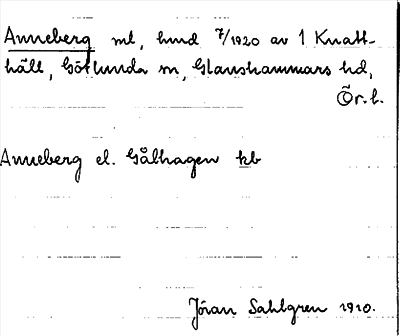 Anneberg ml, hmd 7/1920 av 1 Knatt-
häll, Götlunda sn, Glanshammars hd,
Ör. l.
Anneberg el. Gålhagen kb
Jöran Sahlgren 1910.